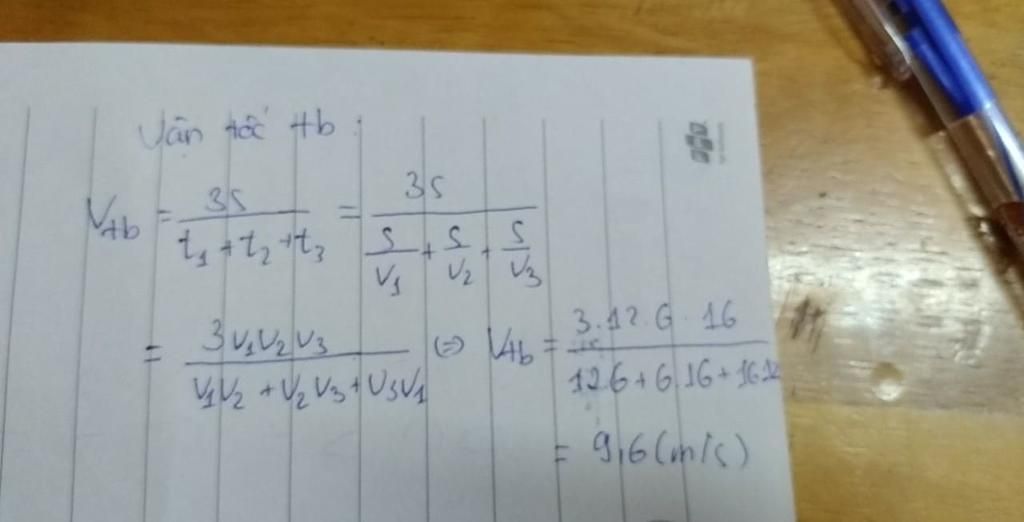 Vận tốc tb:
V_tb = 3S / (t₁ + t₂ + t₃) = 3S / (S/V₁ + S/V₂ + S/V₃)
= 3V₁V₂V₃ / (V₁V₂ + V₂V₃ + V₃V₁) ⇔ V_tb = 3.12.6.16 / (12.6 + 6.16 + 16.12)
= 9,6 (m/s)